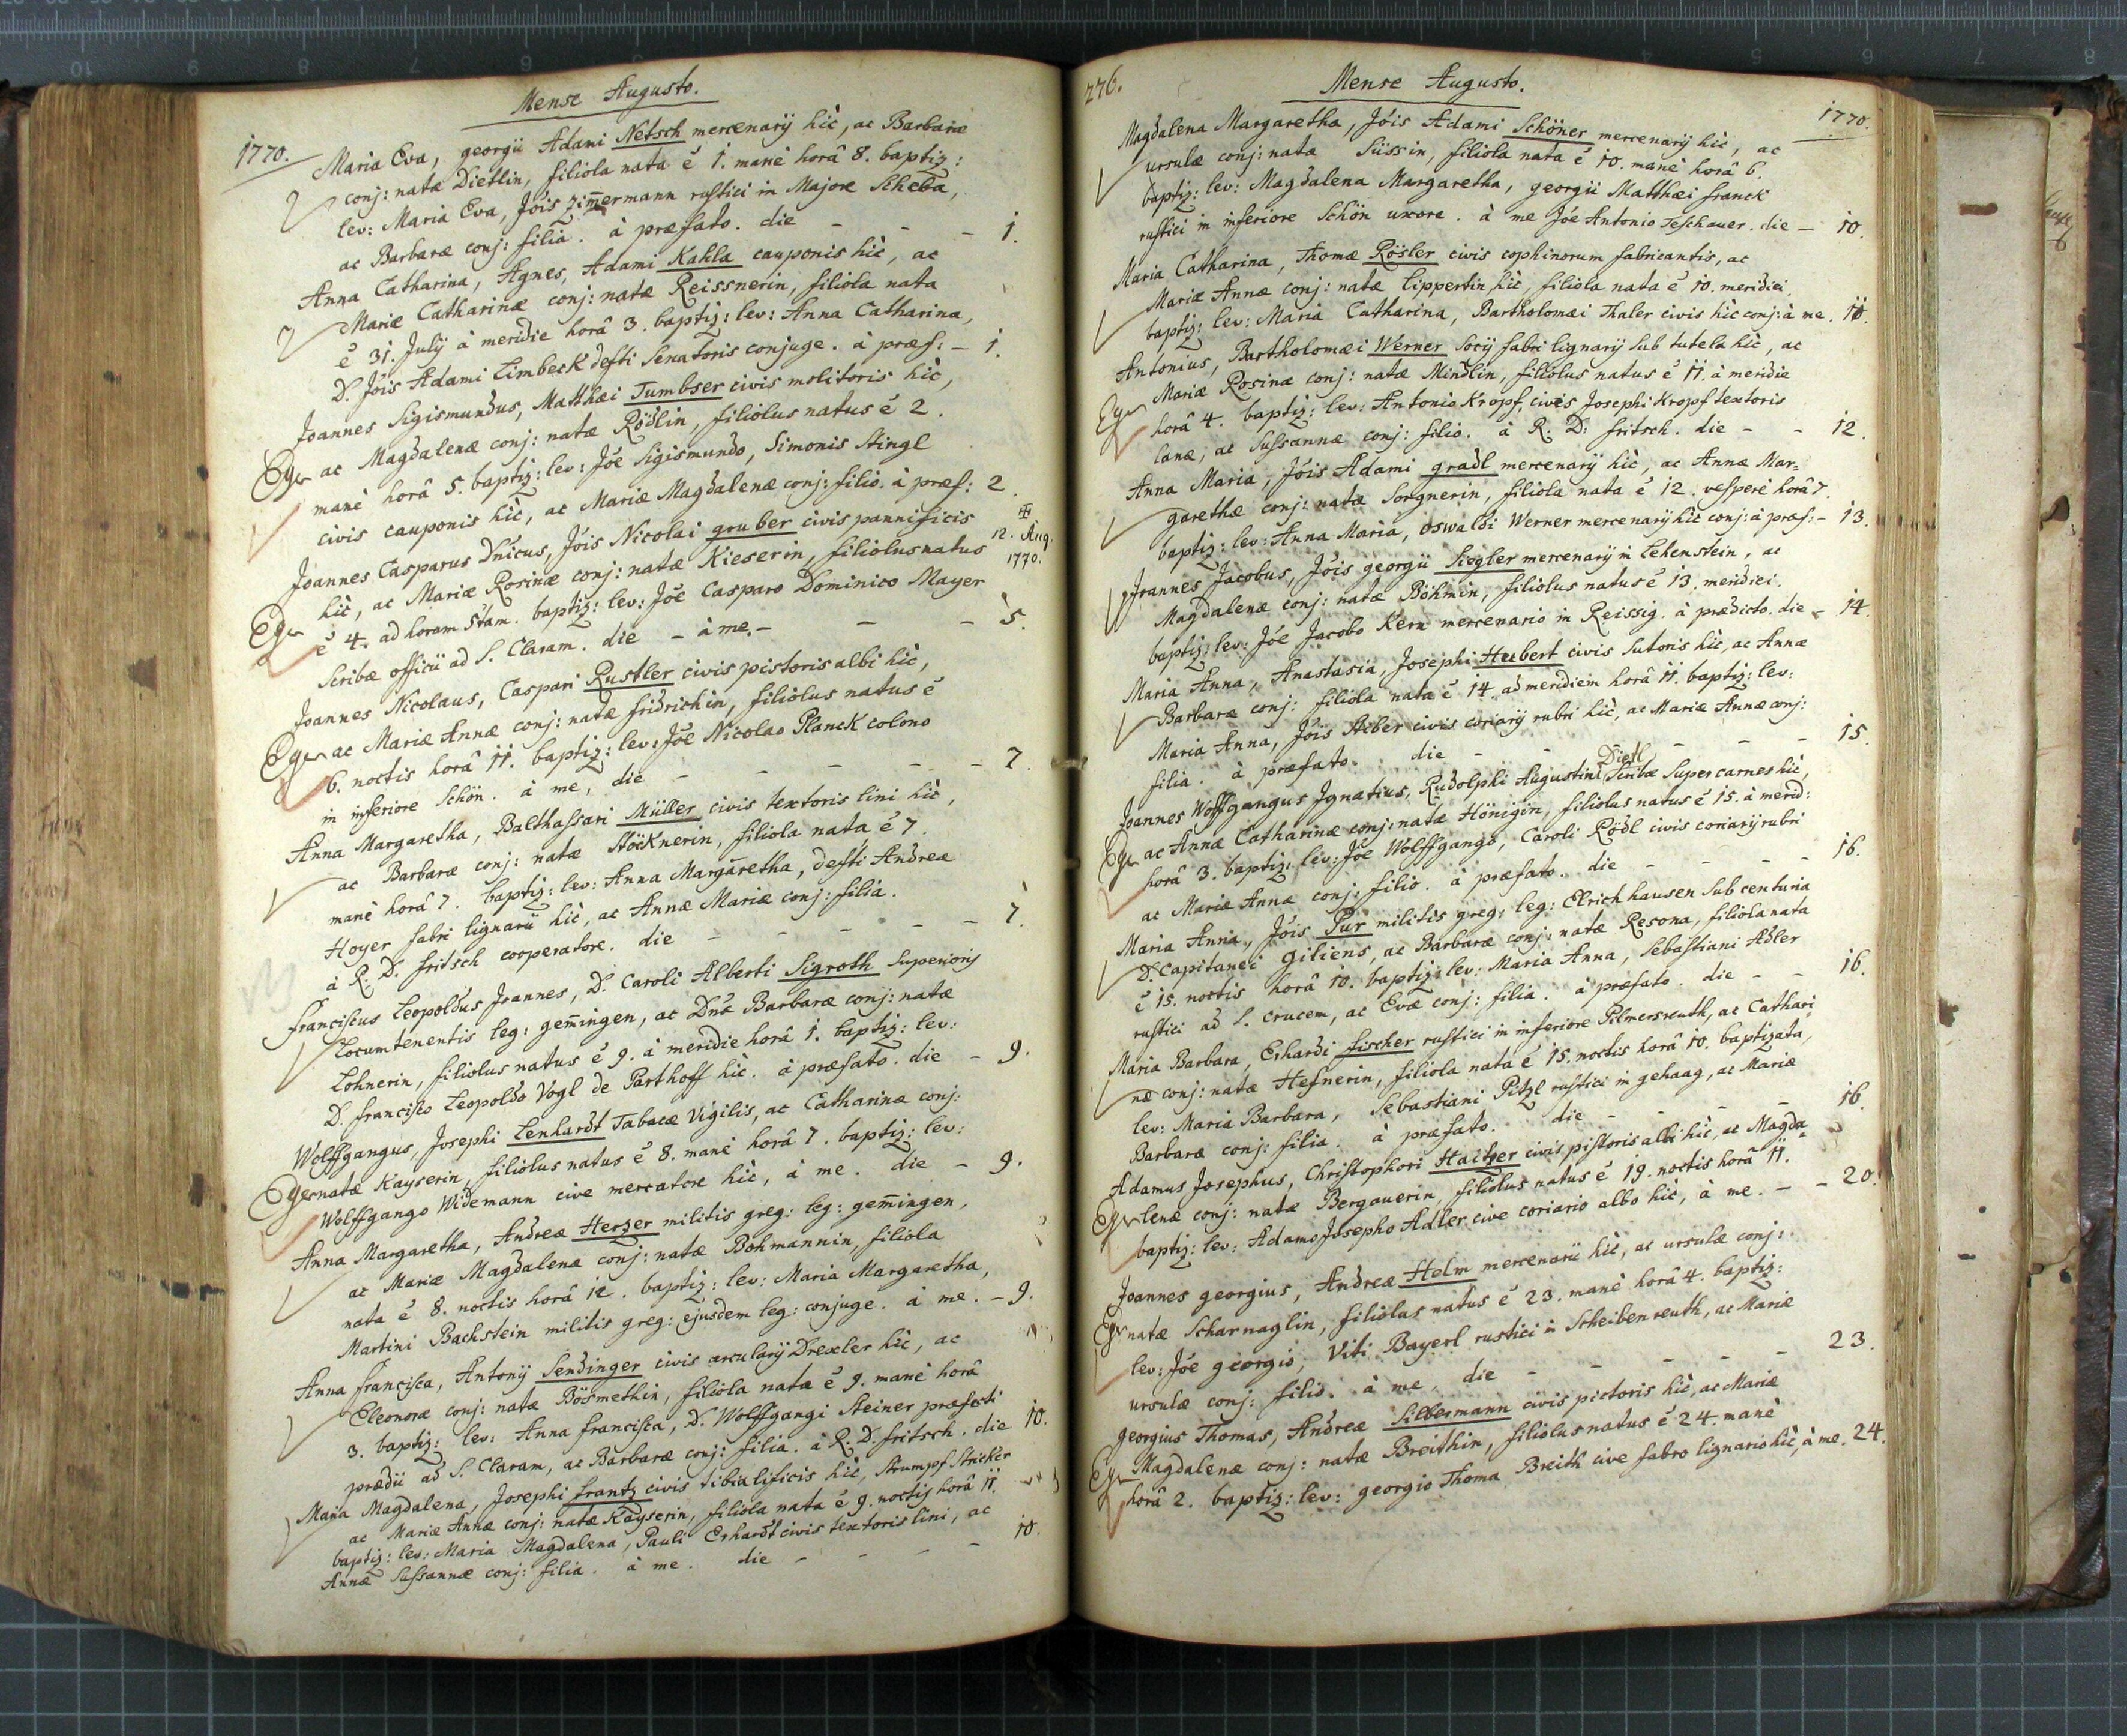 Mense Augusto.
1770.
Maria Eva, georgii Adami Netsch mercenarÿ hìc, ac Barbaræ
conj: natæ Dietlin, filiola nata é 1. manè horâ 8. baptiz:
lev: Maria Eva, Jóis Zim̅ermann rustici in Majore Scheba,
ac Barbaræ conj: filia. à præfato. die - - - 1.
Anna Catharina, Agnes, Adami Kahla cauponis hìc, ac
Mariæ Catharinæ conj: natæ Reissnerin, filiola nata
é 31. Julÿ à meridie horâ 3. baptiz: lev: Anna Catharina,
D. Jóis Adami Limbeck defti Senatoris conjuge. à præf: - 1.
Joannes Sigismundus, Matthæi Tumbser civis molitoris hìc,
ac Magdalenæ conj: natæ Rödlin, filiolus natus é 2.
manè horâ 5. baptiz: lev: Jóe Sigismundo, Simonis Stingl
civis cauponis hìc, ac Mariæ Magdalenæ conj: filio. à præf: 2.
Joannes Casparus Dn̅icus, Jóis Nicolai gruber civis pannificis
hìc, ac Mariæ Rosinæ conj: natæ Kieserin, filiolus natus
12. Aug. 1770.
é 4. ad horam 5tam. baptiz: lev: Jóe Casparo Dominico Mayer
Scribæ officii ad S. Claram. die - à me. - - - 5.
Joannes Nicolaus, Caspari Rustler civis pistoris albi hìc,
ac Mariæ Annæ conj: natæ fridrichin, filiolus natus é
6. noctis horâ 11. baptiz: lev: Jóe Nicolao Planck colono
in inferiore Schön. à me, die - - - - 7.
Anna Margaretha, Balthassari Müller civis textoris lini hìc,
ac Barbaræ conj: natæ Stöcknerin, filiola nata é 7.
manè horâ 7. baptiz: lev: Anna Margaretha, defti Andreæ
Hoyer fabri lignarii hìc, ac Annæ Mariæ conj: filia.
à R. D. fritsch cooperatore. die - - - - 7.
Franciscus Leopoldus Joannes, D. Caroli Alberti Sigroth Superioris
Locumtenentis leg: gem̅ingen, ac Dn̅æ Barbaræ conj: natæ
Lohnerin, filiolus natus é 9. à meridie horâ 1. baptiz: lev:
D. francisco Leopoldo Vogl de Parthoff hìc. à præfato. die - 9.
Wolffgangus, Josephi Lenhardt Tabacæ Vigilis, ac Catharinæ conj:
natæ Kayserin, filiolus natus é 8. manè horâ 7. baptiz: lev:
Wolffgango Widemann cive mercatore hìc, à me. die - 9.
Anna Margaretha, Andreæ Herzer militis greg: leg: gem̅ingen,
ac Mariæ Magdalenæ conj: natæ Bohmannin, filiola
nata é 8. noctis horâ 12. baptiz: lev: Maria Margaretha,
Martini Bachstein militis greg: ejusdem leg: conjuge. à me. - 9.
Anna francisca, Antonÿ Sendinger civis arcularÿ Drexler hìc, ac
Eleonoræ conj: natæ Bösmethin, filiola nata é 9. manè horâ
3. baptiz: lev: Anna francisca, D. Wolffgangi Steiner præfecti
prædii ad S. Claram, ac Barbaræ conj: filia. à R. D. fritsch. die 10.
Maria Magdalena, Josephi frantz civis tibialificis hìc, Strumpf Stricker
ac Mariæ Annæ conj: natæ Kayserin, filiola nata é 9. noctis horâ 11.
baptiz: lev: Maria Magdalena, Pauli Erhardt civis textoris lini, ac
Annæ Sussannæ conj: filia. à me. die - - - - 10.
276.
Mense Augusto.
1770.
Magdalena Margaretha, Jóis Adami Schöner mercenarÿ hìc, ac
ursulæ conj: natæ Süssin, filiola nata é 10. manè horâ 6.
baptiz: lev: Magdalena Margaretha, georgii Matthæi franck
rustici in inferiore Schön uxore. à me Jóe Antonio Teschauer. die - 10.
Maria Catharina, Thomæ Rösler civis cophinorum fabricantis, ac
Mariæ Annæ conj: natæ Lippertin hìc, filiola nata é 10. meridiei
baptiz: lev: Maria Catharina, Bartholomæi Thaler civis hìc conj: à me. 11.
Antonius, Bartholomæi Werner Socÿ fabri lignarÿ sub tutela hìc, ac
Mariæ Rosinæ conj: natæ Mindlin, filiolus natus é 11. à meridie
horâ 4. baptiz: lev: Antonio Kropf, civis Josephi Kropf textoris
lanæ, ac Sussannæ conj: filio. à R. D: fritsch. die - - 12.
Anna Maria, Jóis Adami gradl mercenarÿ hìc, ac Annæ Mar=
garethæ conj: natæ Sorgnerin, filiola nata é 12. vesperè horâ 7.
baptiz: lev: Anna Maria, oswaldi Werner mercenarÿ hìc conj: à præf: - 13.
Joannes Jacobus, Jóis georgii Siegler mercenarÿ in Lehenstein, ac
Magdalenæ conj: natæ Böhmin, filiolus natus é 13. meridiei.
baptiz: lev: Jóe Jacobo Kern mercenario in Reissig. à prædicto. die - 14.
Maria Anna, Anastasia, Josephi Hubert civis sutoris hìc, ac Annæ
Barbaræ conj: filiola nata é 14 ad meridiem horâ 11. baptiz: lev:
Maria Anna, Jóis Alber civis coriarÿ rubri hìc, ac Mariæ Annæ conj:
filia. à præfato. die - - - - - 15.
Dietl
Joannes Wolffgangus Ignatius, Rudolphi Augustini Scribæ super carnes hìc,
ac Annæ Catharinæ conj: natæ Hönigin, filiolus natus é 15. à merid:
horâ 3. baptiz: lev: Jóe Wolffgango, Caroli Rödl civis coriarÿ rubri
ac Mariæ Annæ conj: filio. à præfato. die - - - - 16.
Maria Anna, Jóis Pur militis greg: leg: Elrichhausen sub centuria
D. Capitanei Giliens, ac Barbaræ conj: natæ Resona, filiola nata
é 15. noctis horâ 10. baptiz: lev: Maria Anna, Sebastiani Adler
rustici ad S. crucem, ac Evæ conj: filia. à præfato. die - - 16.
Maria Barbara, Erhardi fischer rustici in inferiore Pilmersreuth, ac Cathari=
næ conj: natæ Hefnerin, filiola nata é 15. noctis horâ 10. baptizata,
lev: Maria Barbara, Sebastiani Pitzl rustici in gehaag, ac Mariæ
Barbaræ conj: filia. à præfato. die - - - - 16.
Adamus Josephus, Christophori Haitzer civis pistoris albi hìc, ac Magda=
lenæ conj: natæ Bergauerin, filiolus natus é 19. noctis horâ 11.
baptiz: lev: Adamo Josepho Adler cive coriario albo hìc, à me. - - 20.
Joannes georgius, Andreæ Helm mercenarii hìc, ac ursulæ conj:
natæ Scharnaglin, filiolus natus é 23. manè horâ 4. baptiz:
lev: Jóe georgio, Viti Bayerl rustici in Scheibenreuth, ac Mariæ
ursulæ conj: filio. à me, die - - - - - 23.
Georgius Thomas, Andreæ Silbermann civis pictoris hìc, ac Mariæ
Magdalenæ conj: natæ Breithin, filiolus natus é 24. manè
horâ 2. baptiz: lev: georgio Thoma Breith cive fabro lignario hìc, à me. 24.